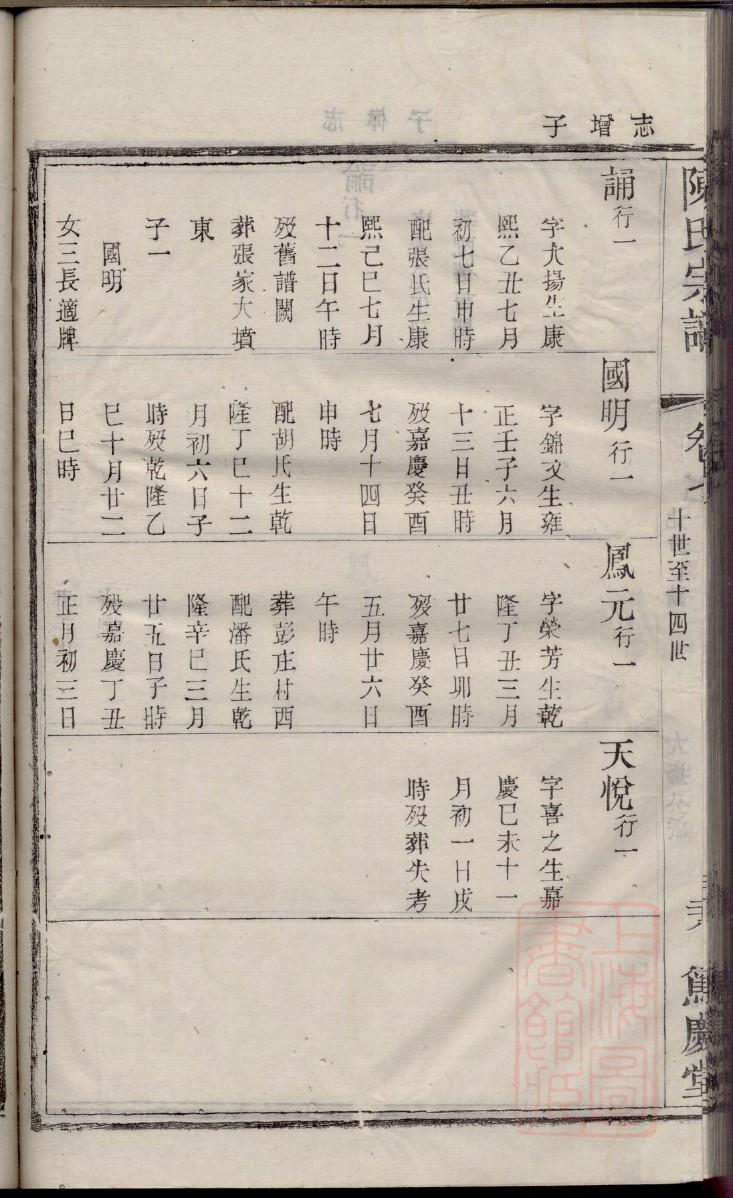 志增子
陳氏宗譜
十世至十四世
篤慶堂
誦行一
字大揚生康
熙乙丑七月
初七日申時
配張氏生康
熙己巳七月
十二日午時
歿舊譜闕
葬張家大墳
東
子一
國明
女三長適牌
國明行一
字錦文生雍
正壬子六月
十三日丑時
歿嘉慶癸酉
七月十四日
申時
配胡氏生乾
隆丁巳十二
月初六日子
時歿乾隆乙
巳十月廿二
日巳時
鳳元行一
字榮芳生乾
隆丁丑三月
廿七日卯時
歿嘉慶癸酉
五月廿六日
午時
葬彭庄村西
配潘氏生乾
隆辛巳三月
廿五日子時
歿嘉慶丁丑
正月初三日
天悅行一
字喜之生嘉
慶己未十一
月初一日戌
時歿葬失考
上海圖書館藏